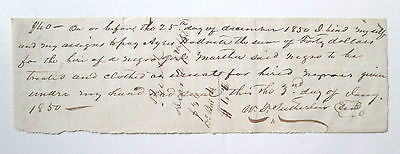 $40 — On or before the 25th day of december 1850 I bind my self
and my assigns to pay Ayres the sum of Forty dollars
for the hire of a negro Martha said negro to be
treated and clothed as is usual for hired negroes given
under my hand and seal this the 3rd day of Jany.
1850 — W. D. Sutherlin Seal